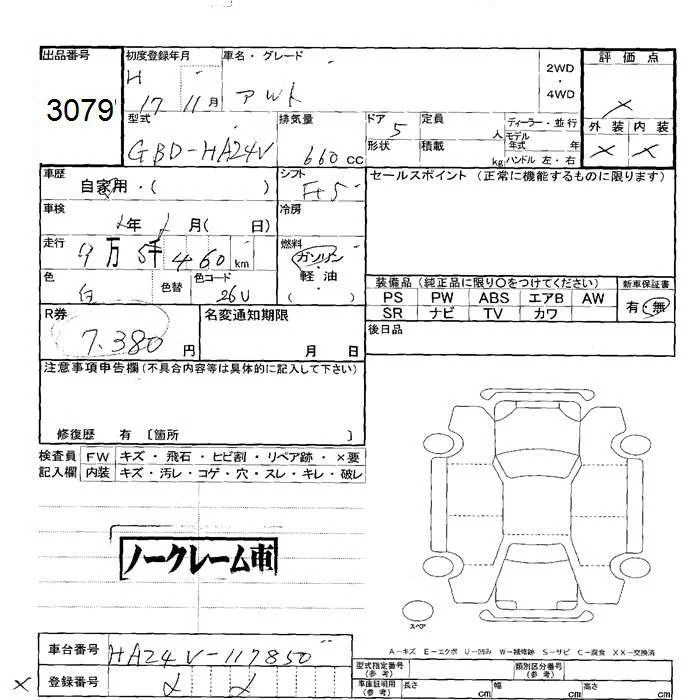 出品番号 初度登録年月 車名・グレード 2WD・4WD 評価点
3079 H 17 11月 アルト ×
型式 排気量 ドア 定員 ディーラー・並行 外装 内装
GBD-HA24V 660cc 5 人 モデル年式 年 × ×
形状 積載 kg ハンドル 左・右
車歴 自家用・( ) シフト F5 セールスポイント (正常に機能するものに限ります)
車検 年 月( 日) 冷房
走行 9万5千460km 燃料 ガソリン・軽油 ( )
色 白 色替 色コード 26U 装備品 (純正品に限り○をつけてください) 新車保証書
PS PW ABS エアB AW 有・無
SR ナビ TV カワ
R券 7,380円 名変通知期限 月 日 後日品
注意事項申告欄(不具合内容等は具体的に記入して下さい)
修復歴 有 〔箇所 〕
検査員 FW キズ・飛石・ヒビ割・リペア跡・×要
記入欄 内装 キズ・汚レ・コゲ・穴・スレ・キレ・破レ
ノークレーム車
スペア
A-キズ E-エクボ U-凹み W-補修跡 S-サビ C-腐食 XX-交換済
車台番号 HA24V-117850
× 登録番号
型式指定番号(参考) 類別区分番号(参考)
車庫証明用(参考) 長さ cm 幅 cm 高さ cm